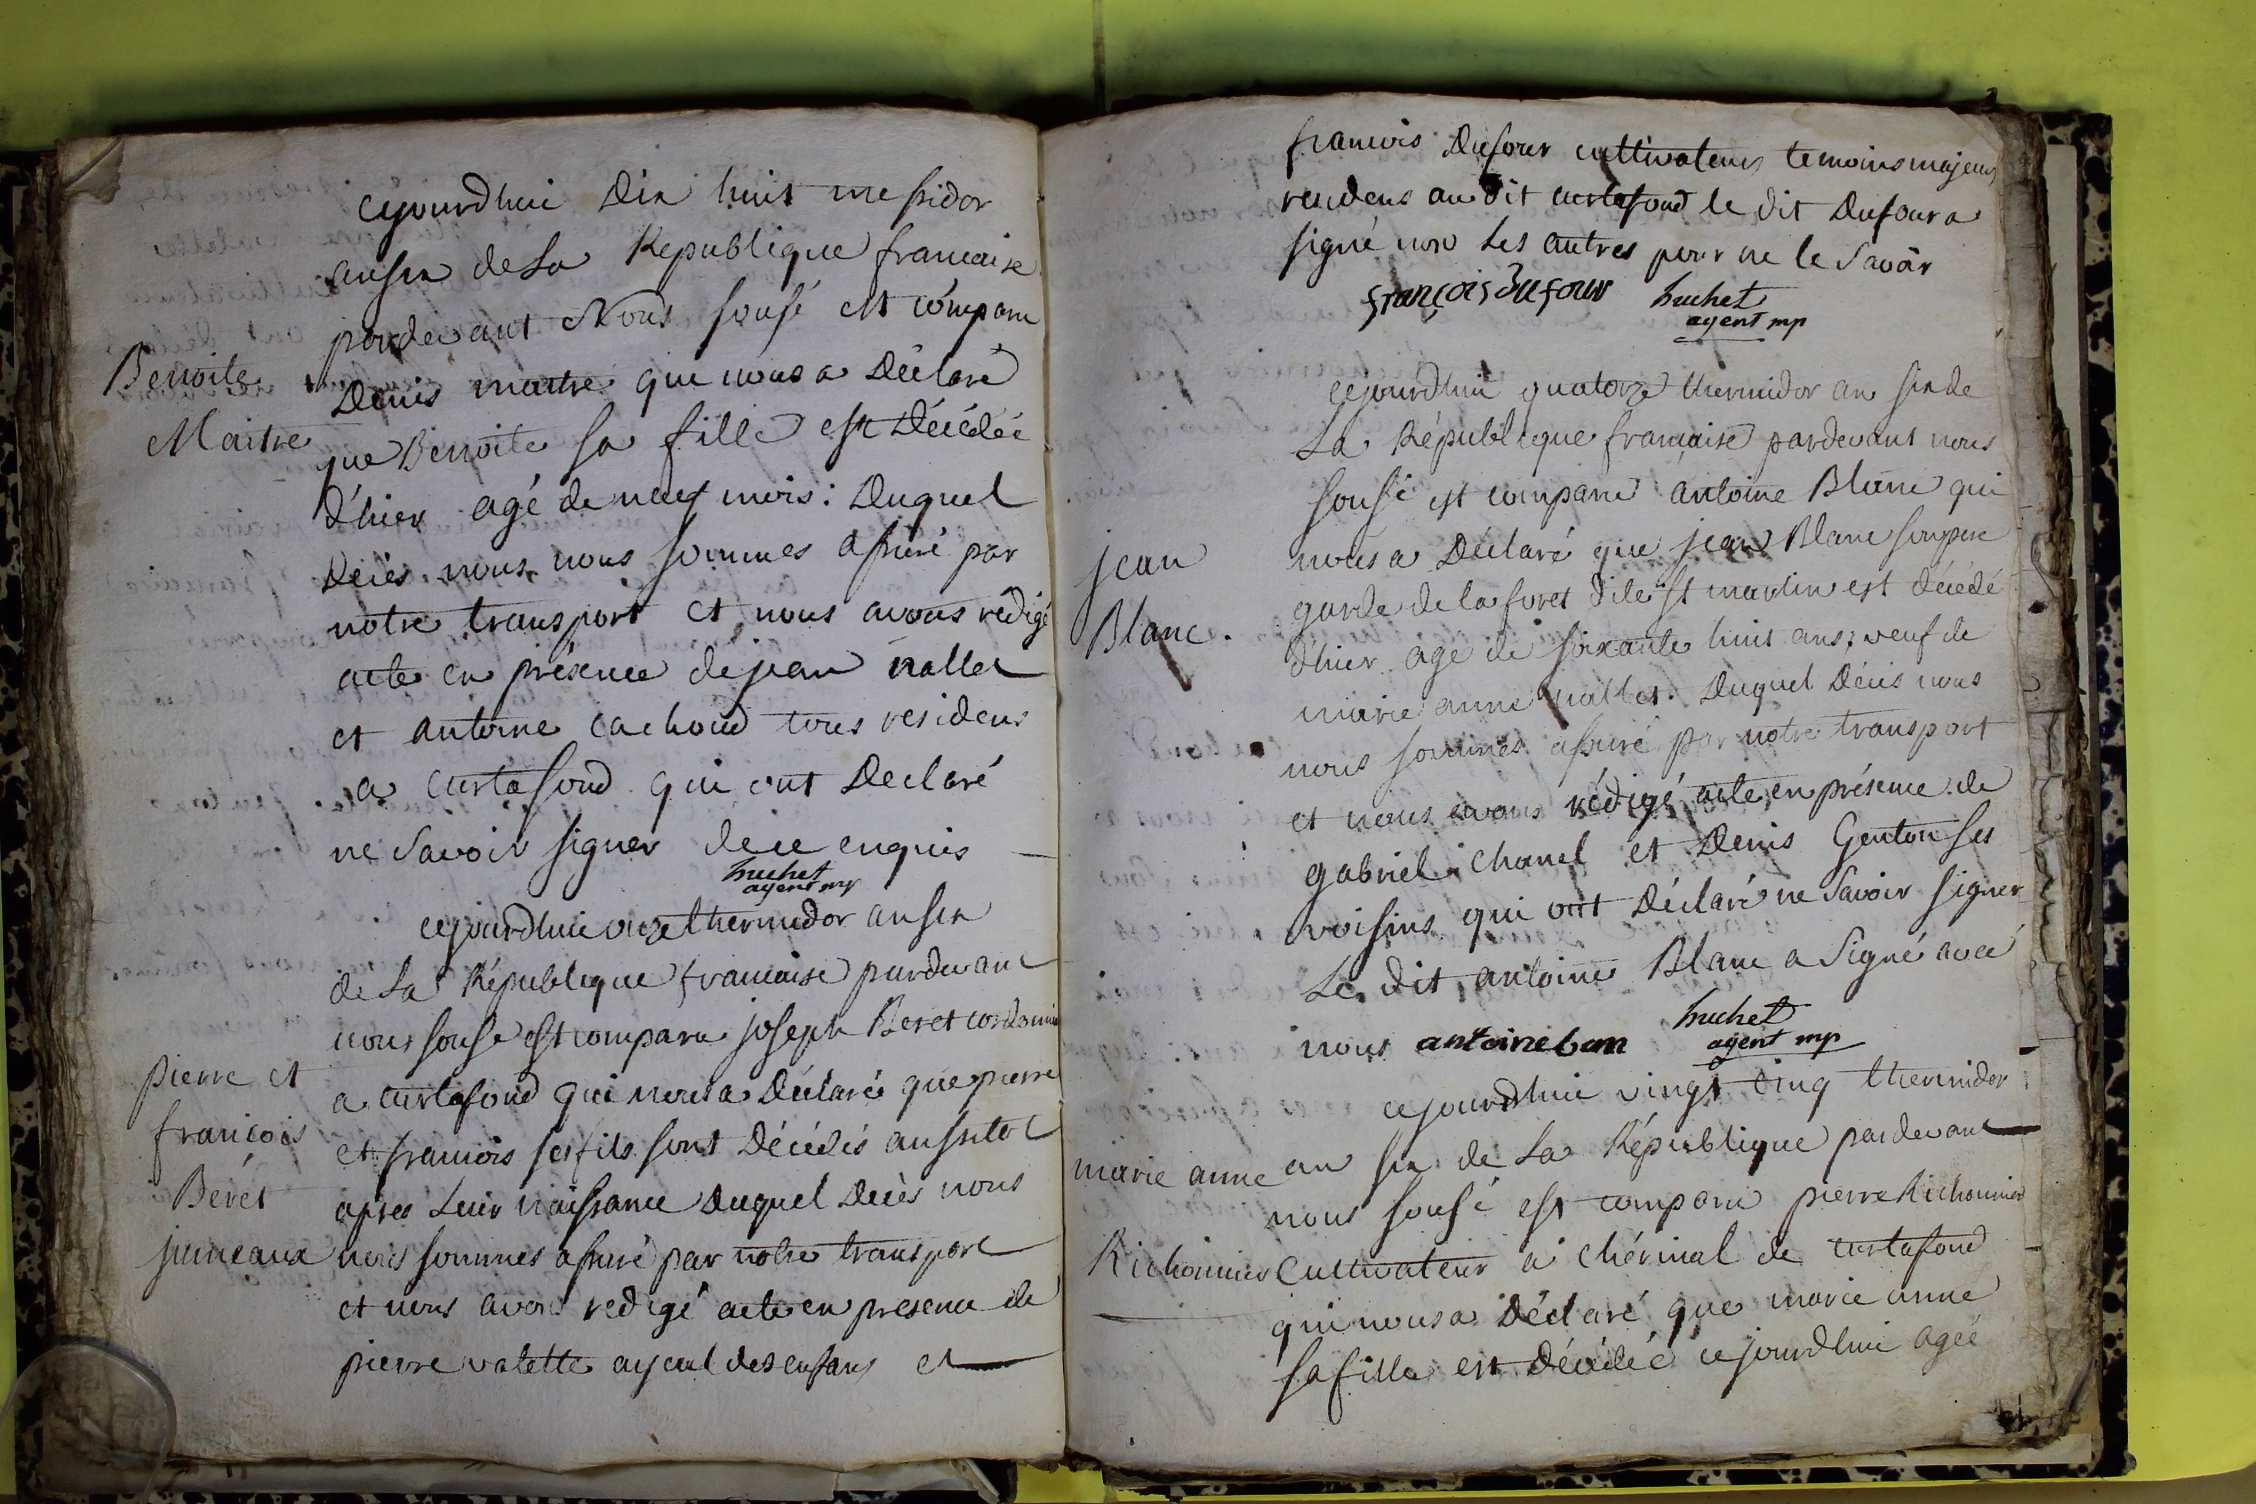 cejourdhui Dix huit messidor
ansix de La Republique francaise
pardevant Nous sousé est comparu
Benoite
Denis maitre que nous a Déclaré
Maitre
que Benoite sa fille est Décédée
d'hier agé de neuf mois : Duquel
Décès nous nous sommes assuré par
notre transport et nous avons rédigé
acte en présence de jean nallet
et antoine cachoud tous residens
a curtafond qui ont Declaré
ne savoir signer de ce enquis
huchet
agent mp
cejourdhui onze thermidor an six
de La République francaise pardevant
nous sousé est comparu joseph Beret cordonnier
pierre et
a curtafond qui nous a Déclaré que pierre
francois
et francois ses fils sont Décédés aussitot
Béret
apres Leur naissance Duquel Decès nous
jumeaux
nous sommes assuré par notre transport
et nous avons redigé acte en presence de
pierre valette ayeul des enfans et
francois Dufour cultivateurs temoins majeurs
residens au dit curtafond le dit Dufour a
signé non Les autres pour ne le Savoir
françois Dufour huchet
agent mp
cejourdhui quatorze thermidor an six de
La République francaise pardevant nous
sousé est comparu antoine Blanc qui
jean
nous a Déclaré que jean Blanc son pere
garde de la foret d'ile st martin est décédé
Blanc.
d'hier agé de soixante huit ans, veuf de
marie anne nallet. Duquel Décès nous
nous sommes assuré par notre transport
et nous avons rédigé acte en présence de
gabriel chanel et Denis Genton ses
voisins qui ont Déclaré ne Savoir signer
Le dit antoine Blanc a Signé avec
nous antoine blan huchet
agent mp
cejourdhui vingt cinq thermidor
marie anne
an six de La République pardevant
nous sousé est comparu pierre Richonnier
Richonnier
Cultivateur a chérinal de curtafond
qui nous a Déclaré que marie anne
sa fille est Décédée cejourdhui agée